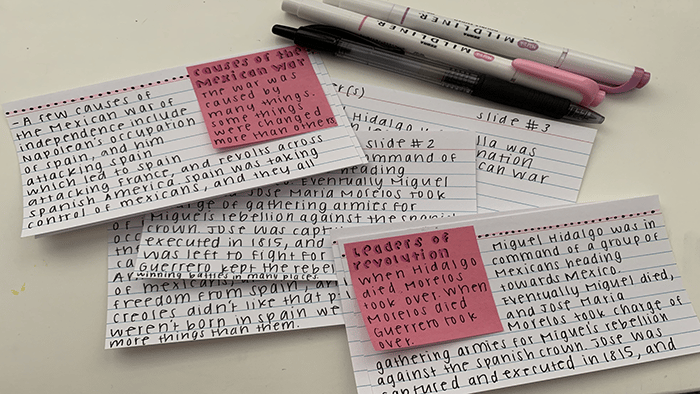 causes of the
Mexican war
the war was
caused by
many things.
some things
were changed
more than others
-A few causes of
the Mexican war of
independence include
Napolean's occupation
of spain, and him
attacking spain
which led to spain
attacking France, and revolts across
spanish America. spain was taking
control of mexicans, and they al
k(s)
slide #3
Hidalgo
lla was
nation
can war
slide #2
command of
heading
Eventually Miguel
Jose Maria Morelos took
charge of gathering armies for
Miguels rebellion against the spanish
crown. Jose was capt
executed in 1815, and
was left to fight for
Guerrero kept the rebel
winning battles in many places.
occ
of mexicans,
freedom from spain, an
creoles didn't like that p
weren't born in spain we
more things than them.
Leaders of
revolution
when Hidalgo
died, Morelos
took over. When
Morelos died
Guerrero took
over.
Miguel Hidalgo was in
command of a group of
Mexicans heading
towards Mexico.
Eventually Miguel died,
and Jose Maria
Morelos took charge of
gathering armies for Miguels rebellion
against the spanish crown. Jose was
captured and executed in 1815, and
ZEBRA MILDLINER
MILDLINER